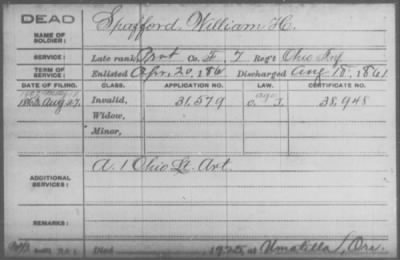 DEAD
NAME OF SOLDIER:
Spafford, William H.
SERVICE:
Late rank, Prvt Co. F 7 Reg't Ohio Inf
TERM OF SERVICE:
Enlisted Apr. 20, 1861 Discharged Aug 18, 1861
DATE OF FILING. CLASS. APPLICATION NO. LAW. CERTIFICATE NO.
1863 Aug 27. Invalid, 31,579 38,948
Widow,
Minor,
ADDITIONAL SERVICES:
A. 1 Ohio Lt. Art.
REMARKS:
Died 1925 at Umatilla, Ore.